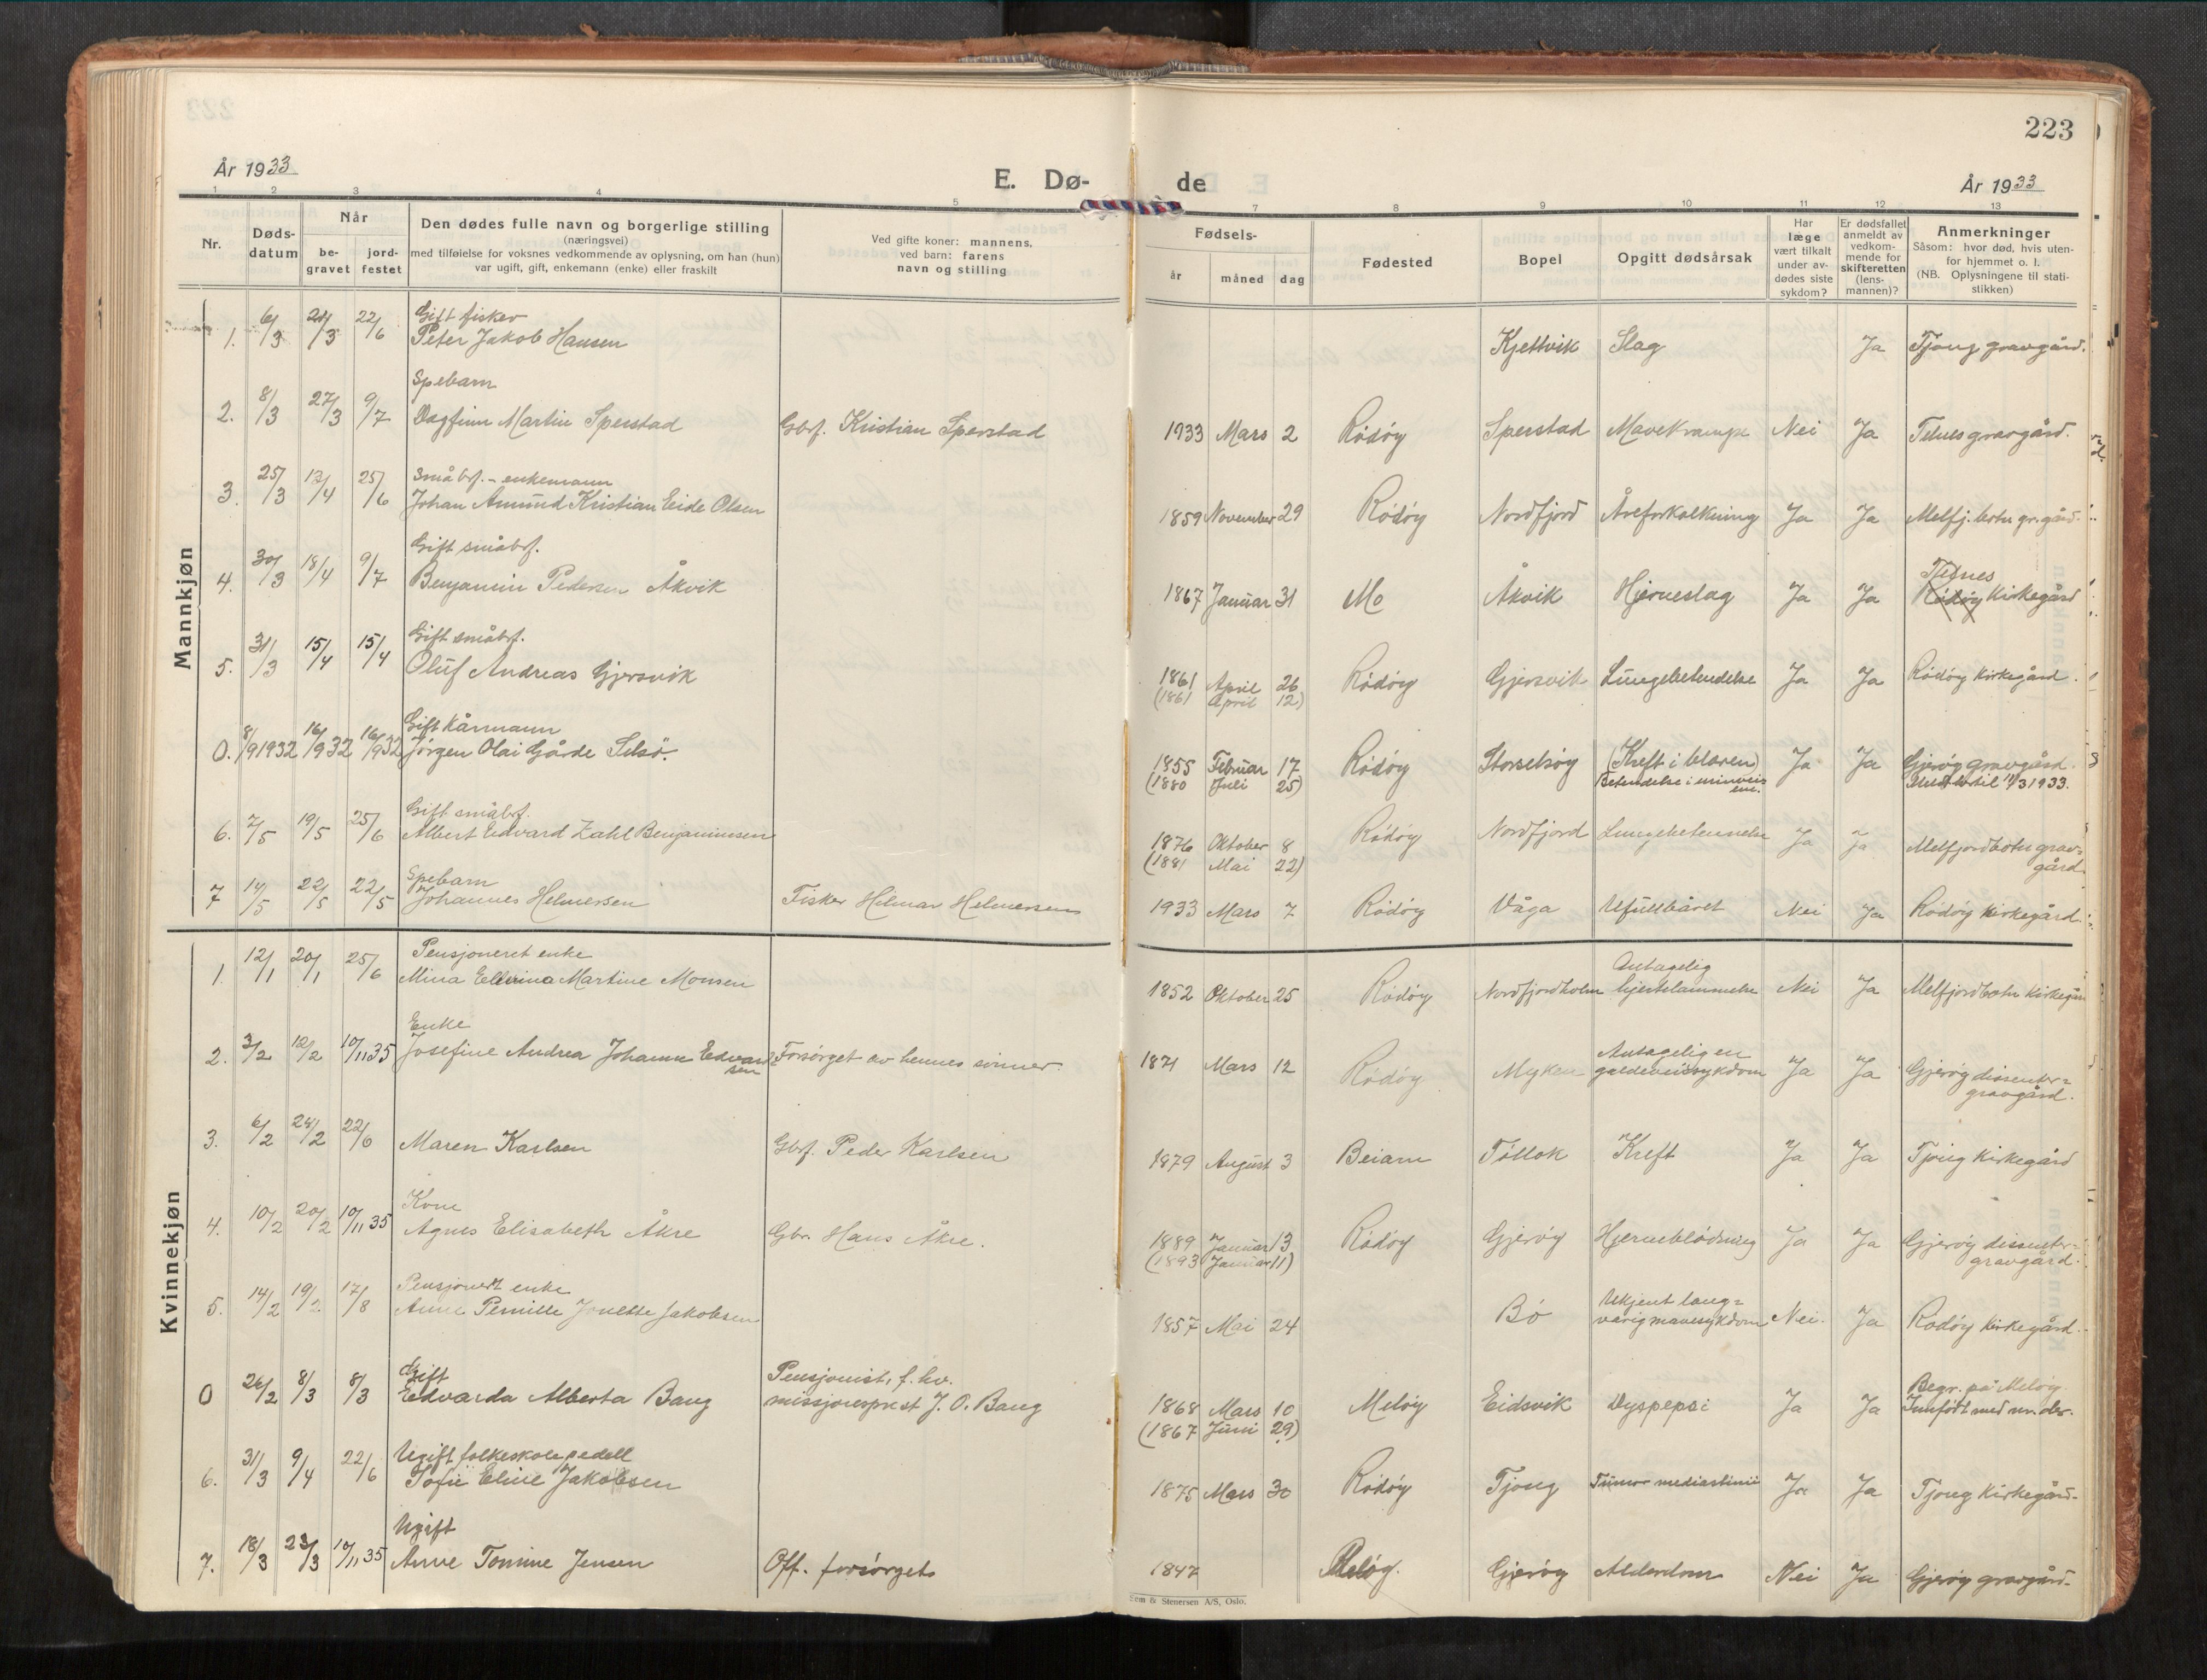 223
År 1933
E. Dø-
de
År 1933
1 2 3 4 5 7 8 9 10 11 12 13
Nr.
Døds-
datum
Når
be-
gravet
jord-
festet
Den dødes fulle navn og borgerlige stilling
(næringsvei)
med tilføielse for voksnes vedkommende av oplysning, om han (hun)
var ugift, gift, enkemann (enke) eller fraskilt
Ved gifte koner: mannens,
ved barn: farens
navn og stilling
Fødsels-
år måned dag
Fødested
Bopel
Opgitt dødsårsak
Har
læge
vært tilkalt
under av-
dødes siste
sykdom?
Er dødsfallet
anmeldt av
vedkom-
mende for
skifteretten
(lens-
mannen)?
Anmerkninger
Såsom: hvor død, hvis uten-
for hjemmet o. l.
(NB. Oplysningene til stati-
stikken)
Mannkjøn
Gift fisker
1. 6/3 /3 22/6 Peter Jakob Hansen Kjettvik Slag Ja Tjong gravgård.
Spebarn
2. 8/3 27/3 9/7 Dagfinn Martin Sperstad Gbrf. Kristian Sperstad 1933 Mars 2 Rødøy Sperstad Mavekrampe Nei Ja Telnes gravgård.
Småbrf. - enkemann
3. 25/3 /4 25/6 Johan Amund Kristian Eide Olsen 1859 November 29 Rødøy Nordfjord Åreforkalkning Ja Ja Melfj. botn gr.gård.
Gift småbrf.
4. 30/3 18/4 9/7 Benjamin Pedersen Åkvik 1867 Januar 31 Mo Åkvik Hjerneslag Ja Ja Rødøy kirkegård
Telnes
Gift småbrf.
5. 31/3 15/4 15/4 Oluf Andreas Gjersvik 1861 April 26 Rødøy Gjersvik Lungebetendelse Ja Ja Rødøy kirkegård.
(1861 April 12)
Gift kårmann
0. 8/9 1932 16/9 32 16/9 32 Jørgen Olai Gårde Selsø. 1855 Februar 17 Rødøy Storselsøy (Kreft i blæren) Ja Ja Gjerøy gravgård.
(1880 Juli 25) Betendelse i urinveiene. 11/3 1933.
Gift småbrf.
6. 7/5 19/5 25/6 Albert Edvard Zahl Benjaminsen 1876 Oktober 8 Rødøy Nordfjord Lungebetennelse Ja Ja Melfjordbotn grav=
(1881 Mai 22) gård.
Spebarn
7 14/5 22/5 22/5 Johannes Helmersen Fisker Hilmar Helmersen 1933 Mars 7 Rødøy Våga Ufullbåret Nei Ja Rødøy kirkegård.
Kvinnekjøn
Pensjoneret enke
1. 12/1 20/1 25/6 Mina Ellevina Martine Monsen 1852 Oktober 25 Rødøy Nordfjordholm Antagelig
hjertelammelse Nei Ja Melfjordbotn kirkegård
Enke
2. 3/2 12/2 10/11 35 Josefine Andrea Johanne Edvard
sen Forsørget av hennes sønner. 1871 Mars 12 Rødøy Myken Antagelig en
galdeveissykdom Ja Ja Gjerøy dissenter=
gravgård.
3. 6/2 24/2 22/6 Maren Karlsen Gbrf. Peder Karlsen 1879 August 3 Beiarn Tøllok Kreft Ja Ja Tjong kirkegård
Kone
4. 10/2 20/2 10/11 35 Agnes Elisabeth Åkre Gbr. Hans Åkre. 1889 Januar 13 Rødøy Gjerøy Hjerneblødning Ja Ja Gjerøy dissenter=
(1893 Januar 11) gravgård.
Pensjonert enke
5. 14/2 19/2 17/8 Anne Pernille Jonette Jakobsen 1857 Mai 24 Bø Ukjent lang=
varig mavesykdom Nei. Ja Rødøy kirkegård.
Gift
0 26/2 8/3 8/3 Edvarda Alberta Bang Pensjonist, f. hv.
missjonsprest J. O. Bang 1868 Mars 10 Meløy Eidsvik Dyspepsi Ja Ja Begr. på Meløy
(1867 Juni 29) Innført med nr. der.
Ugift folkeskolepedell
6. 31/3 9/4 22/6 Sofie Eline Jakobsen 1875 Mars 30 Rødøy Tjong Tumor mediastinii Ja Ja Tjong kirkegård.
Ugift
7. 18/3 23/3 10/11 35 Anne Tomine Jensen Off. forsørget 1847 Meløy. Gjerøy Alderdom Nei Ja Gjerøy gravgård.
Sem & Stenersen A/S, Oslo.